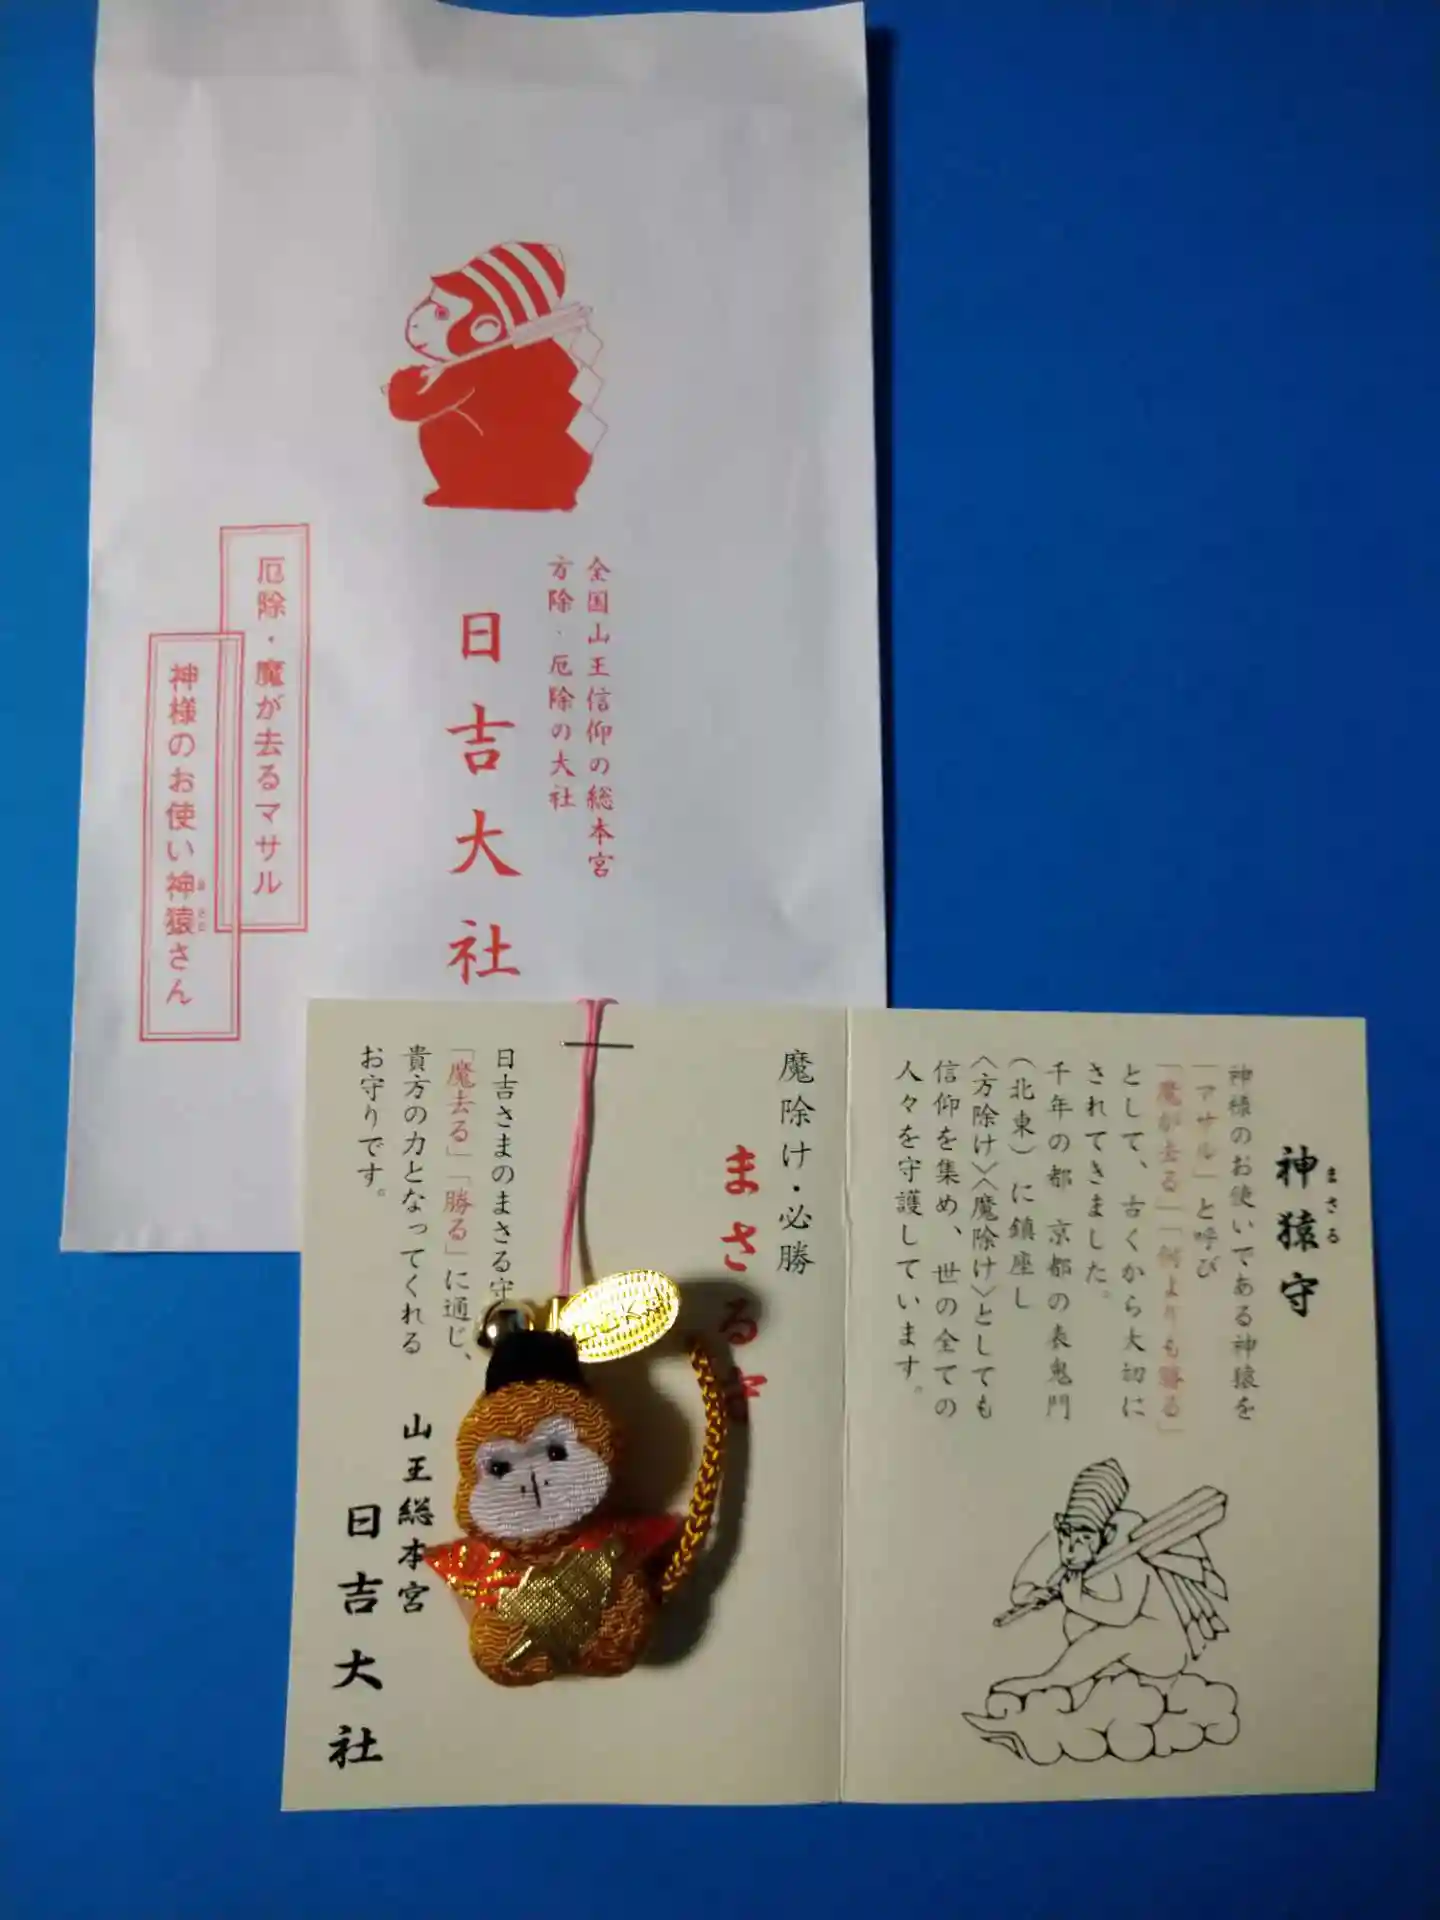 全国山王信仰の総本宮
方除・厄除の大社
日吉大社
厄除・魔が去るマサル
神様のお使い神猿さん
神猿守
まさる
神様のお使いである神猿を
「マサル」と呼び
「魔が去る」「何よりも勝る」
として、古くから大切に
されてきました。
千年の都 京都の表鬼門
(北東)に鎮座し
〈方除け〉〈魔除け〉としても
信仰を集め、世の全ての
人々を守護しています。
魔除け・必勝
まさる守
日吉さまのまさる守
「魔去る」「勝る」に通じ、
貴方の力となってくれる
お守りです。
山王総本宮
日吉大社